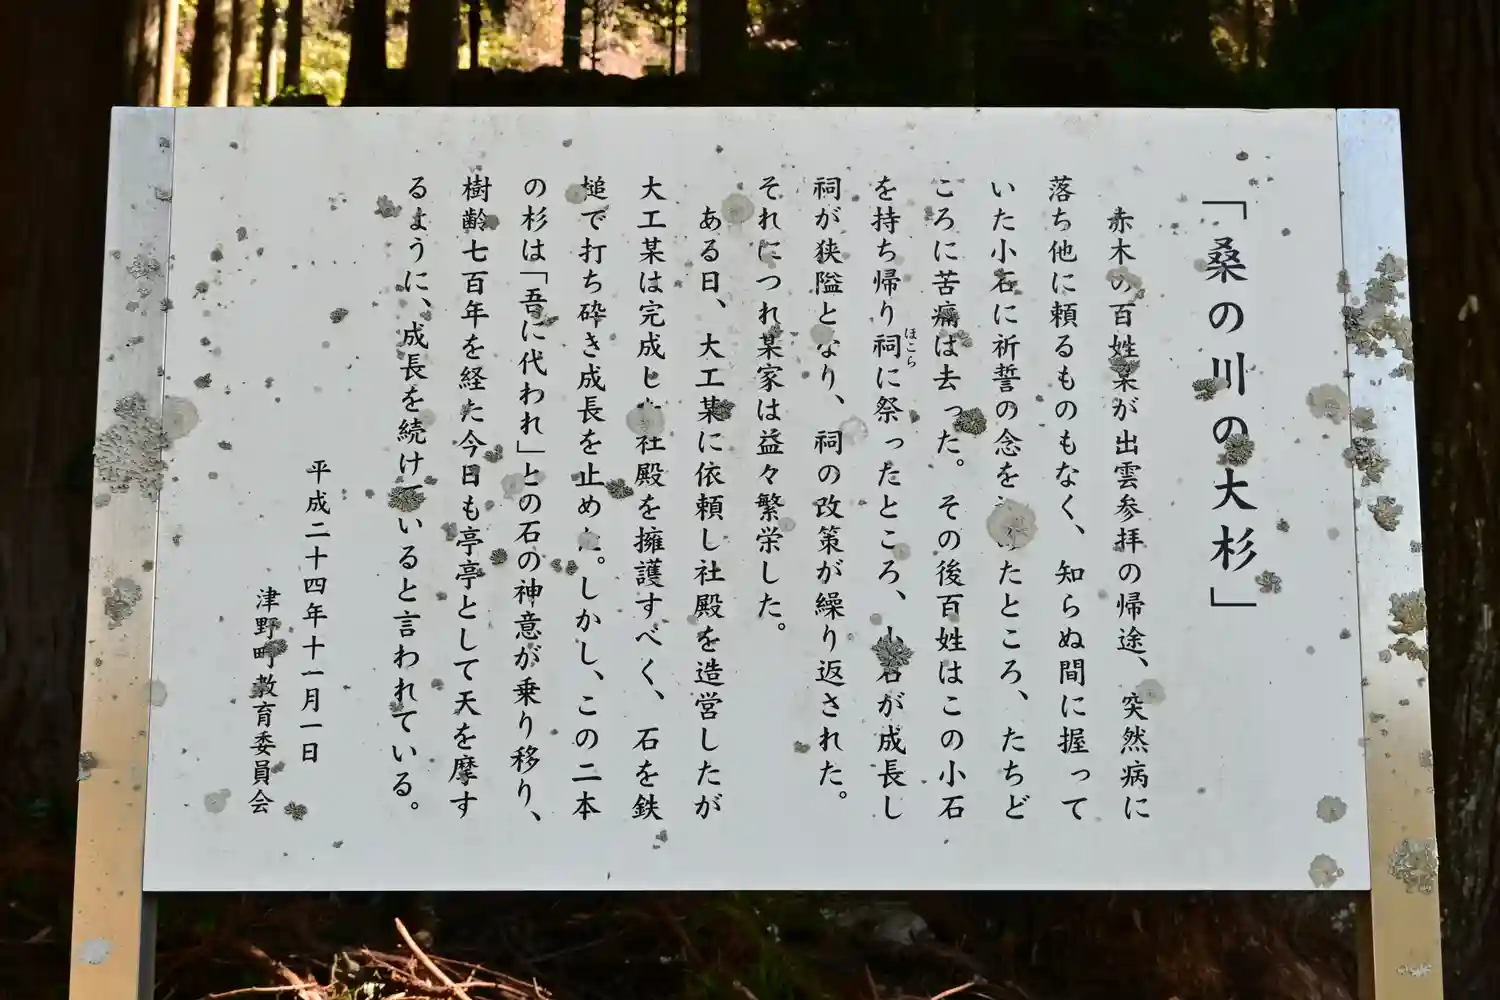 「桑の川の大杉」
赤木の百姓某が出雲参拝の帰途、突然病に
落ち他に頼るものもなく、知らぬ間に握って
いた小石に祈誓の念を たところ、たちど
ころに苦痛は去った。その後百姓はこの小石
を持ち帰り祠に祭ったところ、小石が成長し
ほこら
祠が狭隘となり、祠の改策が繰り返された。
それにつれ某家は益々繁栄した。
ある日、大工某に依頼し社殿を造営したが
大工某は完成した社殿を擁護すべく、石を鉄
槌で打ち砕き成長を止めた。しかし、この二本
の杉は「吾に代われ」との石の神意が乗り移り、
樹齢七百年を経た今日も亭亭として天を摩す
るように、成長を続けていると言われている。
平成二十四年十一月一日
津野町教育委員会